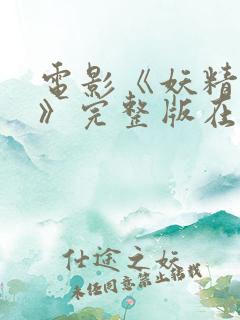 電影《妖精
》完整版在
仕途之妖
未经同意禁止转载